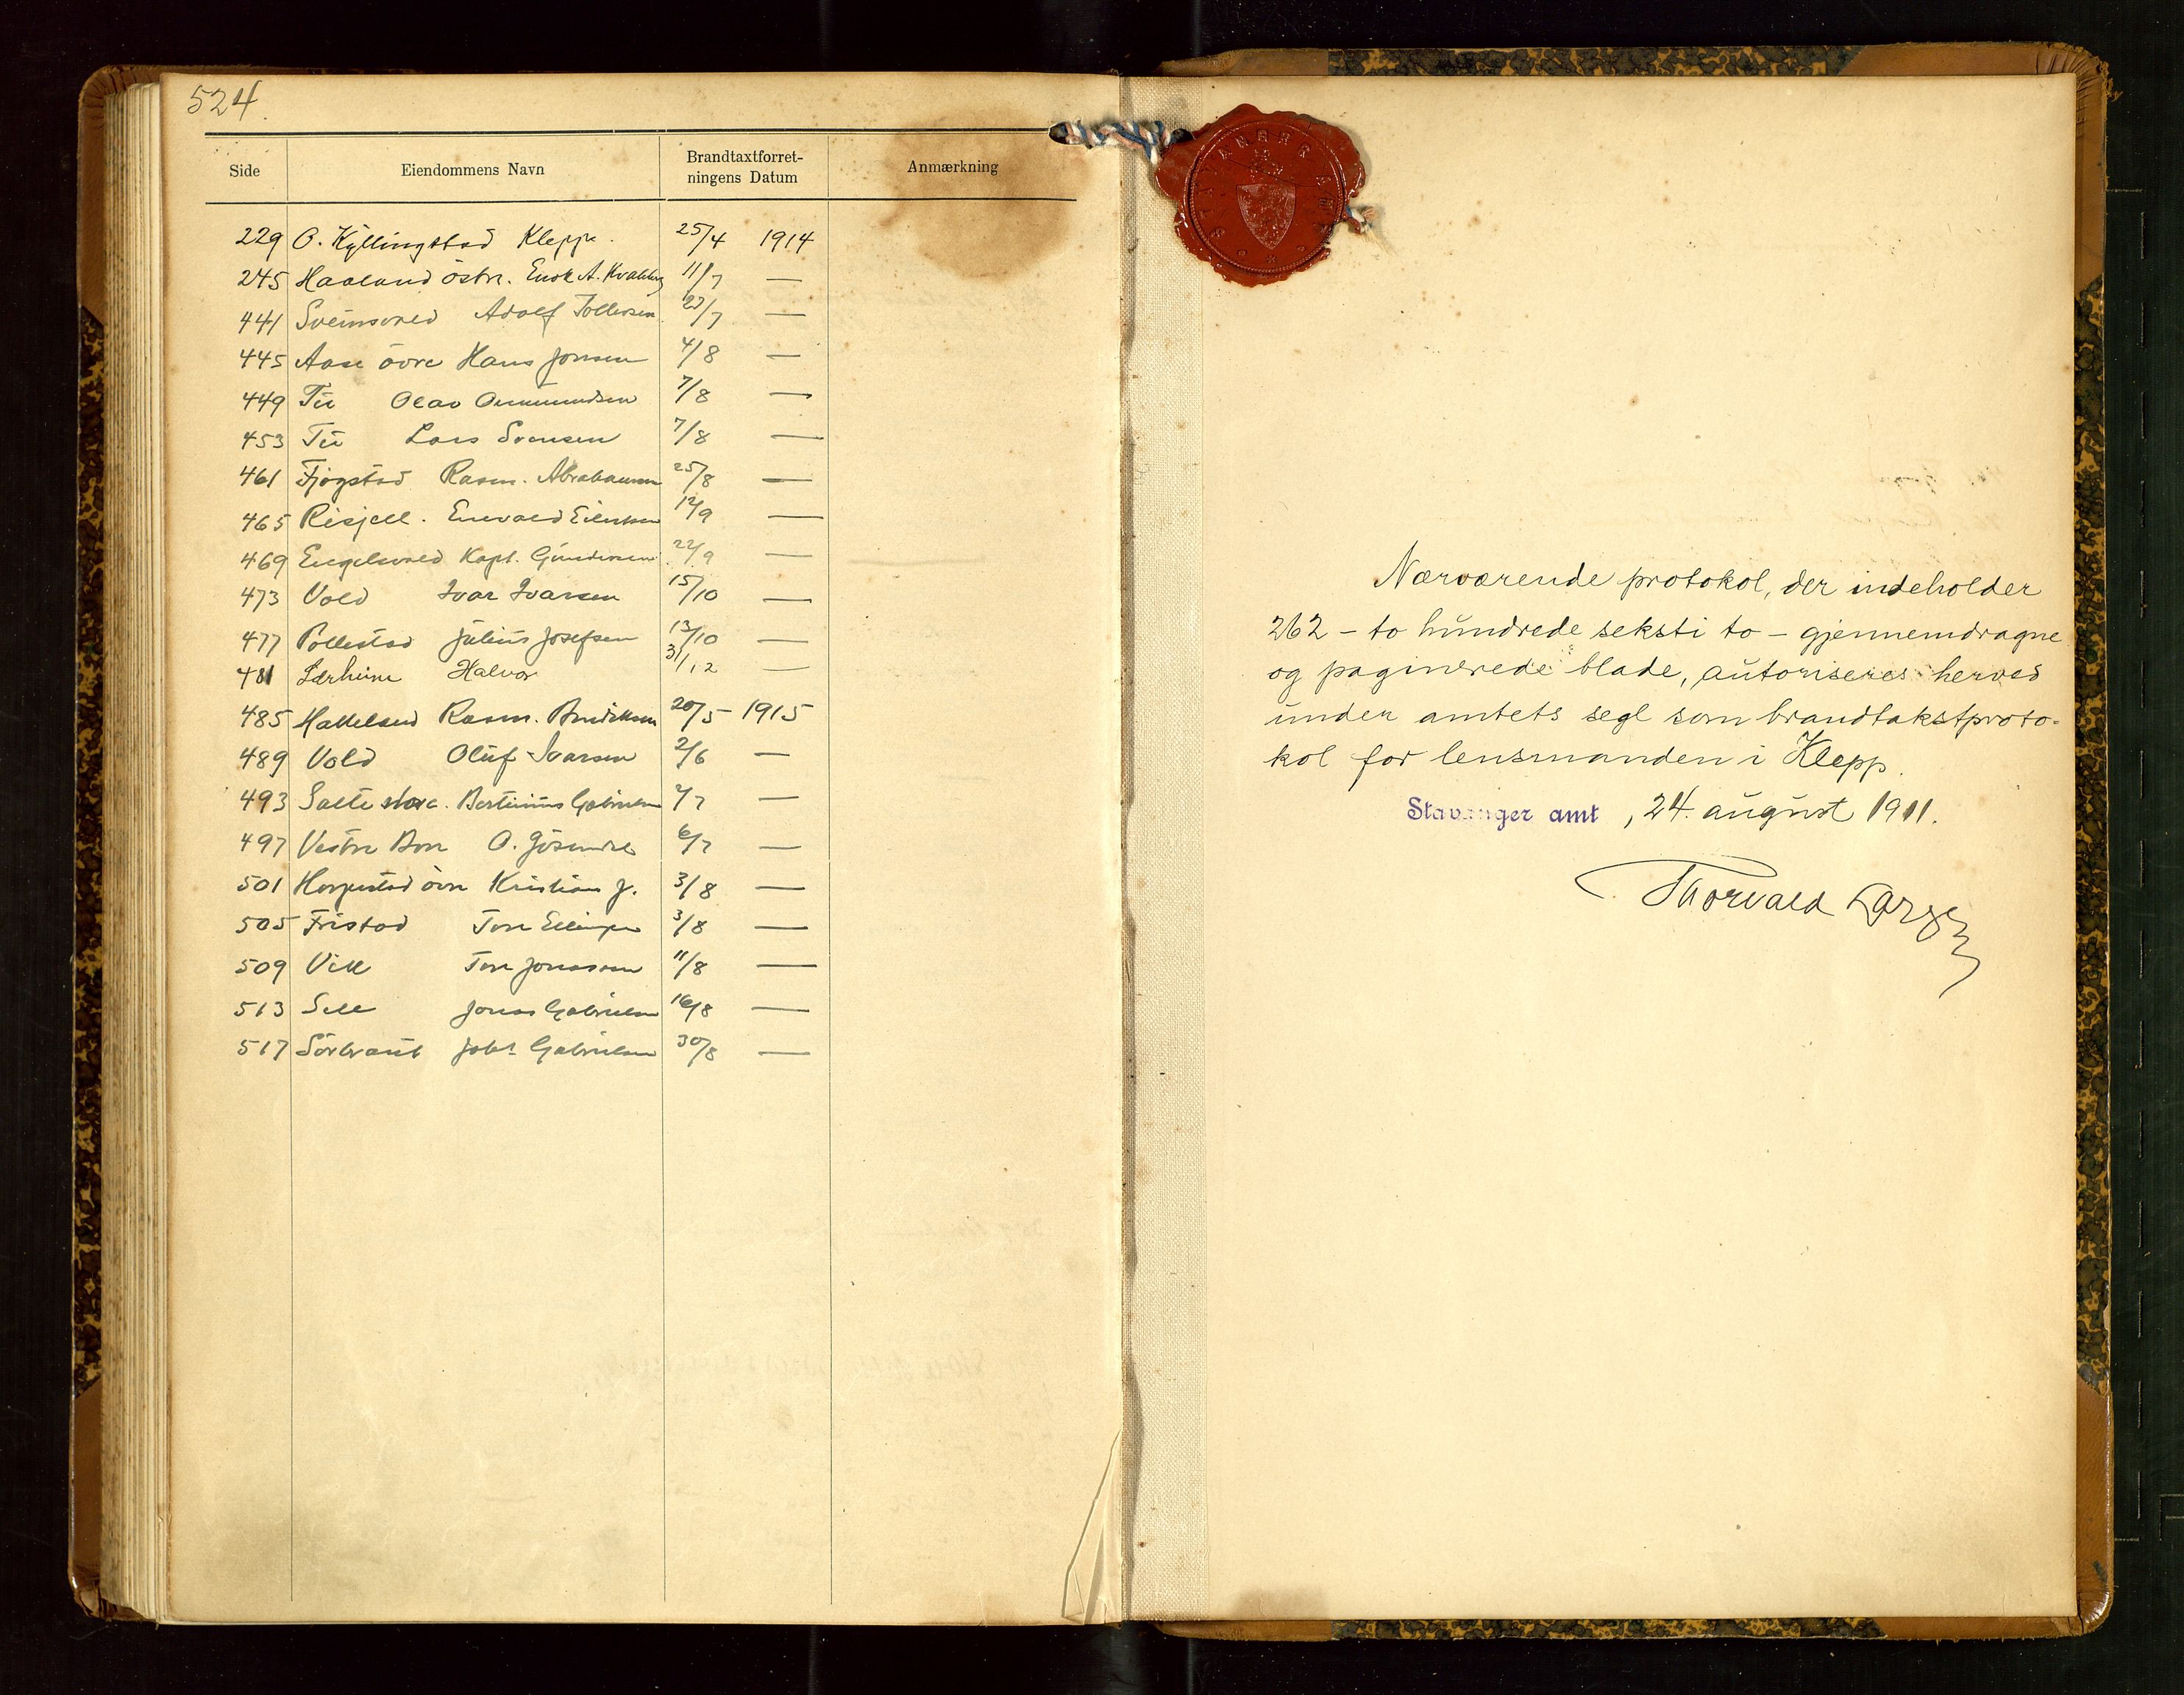 524.
Side Eiendommens Navn Brandtaxtforret-
ningens Datum Anmærkning
229 O. Kyllingstad Kleppe. 25/4 1914
245 Haaland östre. Enok A. 11/7 —
441 Sveinsvold Adolf Tollefsen 29/7 —
445 Aase övre Hans Jonsen 4/8 —
449 Tu Olav Ommundsen 7/8 —
453 Tu Lars Svensen 7/8 —
461 Fjogstad Rasm. Abrahamsen 25/8 —
465 Risjell. Enevald Eriksen 12/9 —
469 Engelsvold Kapt. Gundersen 22/9 —
473 Vold Ivar Ivarsen 15/10 —
477 Pollestad Julius Josefsen 13/10 —
481 Lærheim Halvor 31/12 —
485 Haddeland Rasm. 20/5 - 1915
489 Vold Oluf Ivarsen 2/6 —
493 Salte store. Bertinius Gabrielsen 2/7 —
497 Vestre Bore O. Jösendal 6/7 —
501 Horpestad övre Kristian J. 3/8 —
505 Fristad Tore Ellingsen 3/8 —
509 Vik Tore Jonassen 11/8 —
513 Sele Jonas Gabrielsen 16/8 —
517 Sörbraut Jakob Gabrielsen 30/8 —
STAVANGER AMT
Nærværende protokol, der indeholder
262 – to hundrede seksti to – gjennemdragne
og paginerede blade, autoriseres herved
under amtets segl som brandtakstproto-
kol for lensmanden i Klepp.
Stavanger amt, 24. august 1911.
Thorvald Larsen